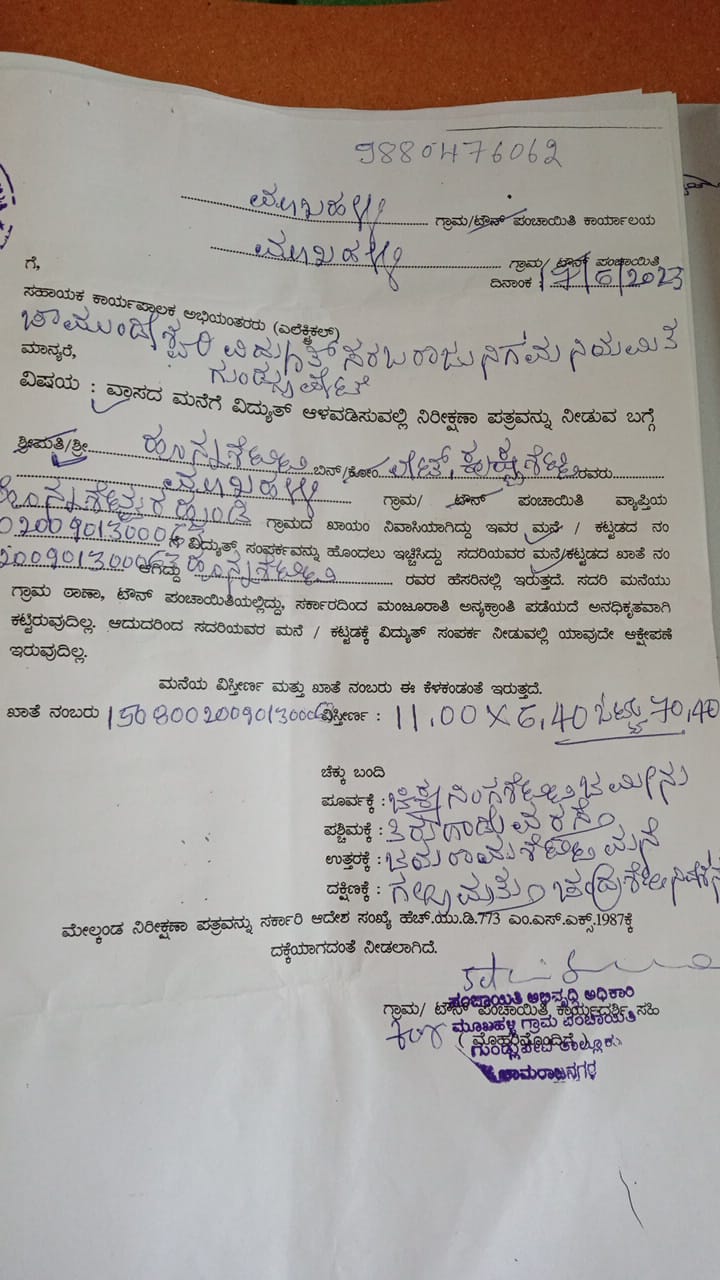 9880476062
ಮೂಖಹಳ್ಳಿ ಗ್ರಾಮ/ಟೌನ್ ಪಂಚಾಯಿತಿ ಕಾರ್ಯಾಲಯ
ಮೂಖಹಳ್ಳಿ ಗ್ರಾಮ/ ಟೌನ್ ಪಂಚಾಯಿತಿ
ಗೆ,
ದಿನಾಂಕ : 17/6/2023
ಸಹಾಯಕ ಕಾರ್ಯಪಾಲಕ ಅಭಿಯಂತರರು (ಎಲೆಕ್ಟ್ರಿಕಲ್)
ಚಾಮುಂಡೇಶ್ವರಿ ವಿದ್ಯುತ್ ಸರಬರಾಜು ನಿಗಮ ನಿಯಮಿತ
ಮಾನ್ಯರೆ,
ಗುಂಡ್ಲುಪೇಟೆ
ವಿಷಯ : ವಾಸದ ಮನೆಗೆ ವಿದ್ಯುತ್ ಆಳವಡಿಸುವಲ್ಲಿ ನಿರೀಕ್ಷಣಾ ಪತ್ರವನ್ನು ನೀಡುವ ಬಗ್ಗೆ
ಶ್ರೀಮತಿ/ಶ್ರೀ ಹೊನ್ನಶೆಟ್ಟಿ ಬಿನ್/ಕೋಂ ಲೇಟ್, ಕೃಷ್ಣಶೆಟ್ಟಿ ರವರು
ಮೂಖಹಳ್ಳಿ ಗ್ರಾಮ/ ಟೌನ್ ಪಂಚಾಯಿತಿ ವ್ಯಾಪ್ತಿಯ
ಹೊನ್ನಶೆಟ್ಟರ ಹುಂಡಿ ಗ್ರಾಮದ ಖಾಯಂ ನಿವಾಸಿಯಾಗಿದ್ದು ಇವರ ಮನೆ / ಕಟ್ಟಡದ ನಂ
ಗೆ ವಿದ್ಯುತ್ ಸಂಪರ್ಕವನ್ನು ಹೊಂದಲು ಇಚ್ಚಿಸಿದ್ದು ಸದರಿಯವರ ಮನೆ/ಕಟ್ಟಡದ ಖಾತೆ ನಂ
ಆಗಿದ್ದು ಹೊನ್ನಶೆಟ್ಟಿ ರವರ ಹೆಸರಿನಲ್ಲಿ ಇರುತ್ತದೆ. ಸದರಿ ಮನೆಯು
ಗ್ರಾಮ ಠಾಣಾ, ಟೌನ್ ಪಂಚಾಯಿತಿಯಲ್ಲಿದ್ದು, ಸರ್ಕಾರದಿಂದ ಮಂಜೂರಾತಿ ಅನ್ಯಕ್ರಾಂತಿ ಪಡೆಯದೆ ಅನಧಿಕೃತವಾಗಿ
ಕಟ್ಟಿರುವುದಿಲ್ಲ. ಆದುದರಿಂದ ಸದರಿಯವರ ಮನೆ / ಕಟ್ಟಡಕ್ಕೆ ವಿದ್ಯುತ್ ಸಂಪರ್ಕ ನೀಡುವಲ್ಲಿ ಯಾವುದೇ ಆಕ್ಷೇಪಣೆ
ಇರುವುದಿಲ್ಲ.
ಮನೆಯ ವಿಸ್ತೀರ್ಣ ಮತ್ತು ಖಾತೆ ನಂಬರು ಈ ಕೆಳಕಂಡಂತೆ ಇರುತ್ತದೆ.
ಖಾತೆ ನಂಬರು ವಿಸ್ತೀರ್ಣ : 11.00 X 6.40 ಒಟ್ಟು 70.40
ಚೆಕ್ಕು ಬಂದಿ
ಪೂರ್ವಕ್ಕೆ : ಚಿಕ್ಕನಿಂಗಶೆಟ್ಟಿ ಜಮೀನು
ಪಶ್ಚಿಮಕ್ಕೆ : ತಿರುಗಾಡುವ ರಸ್ತೆ
ಉತ್ತರಕ್ಕೆ : ಜಯರಾಮಶೆಟ್ಟಿ ಮನೆ
ದಕ್ಷಿಣಕ್ಕೆ : ಗಲ್ಲಿ ಮತ್ತು ಚಂದ್ರಶೆಟ್ಟಿ ನಿವೇಶನ
ಮೇಲ್ಕಂಡ ನಿರೀಕ್ಷಣಾ ಪತ್ರವನ್ನು ಸರ್ಕಾರಿ ಆದೇಶ ಸಂಖ್ಯೆ ಹೆಚ್.ಯು.ಡಿ.773 ಎಂ.ಎಸ್.ಎಕ್ಸ್.1987ಕ್ಕೆ
ದಕ್ಕೆಯಾಗದಂತೆ ನೀಡಲಾಗಿದೆ.
ಗ್ರಾಮ/ ಟೌನ್ ಪಂಚಾಯಿತಿ ಕಾರ್ಯದರ್ಶಿ ಸಹಿ
( ಮೊಹರಿನೊಂದಿಗೆ )
ಪಂಚಾಯಿತಿ ಅಭಿವೃದ್ಧಿ ಅಧಿಕಾರಿ
ಮೂಖಹಳ್ಳಿ ಗ್ರಾಮ ಪಂಚಾಯಿತಿ
ಗುಂಡ್ಲುಪೇಟೆ ತಾಲ್ಲೂಕು
ಚಾಮರಾಜನಗರ